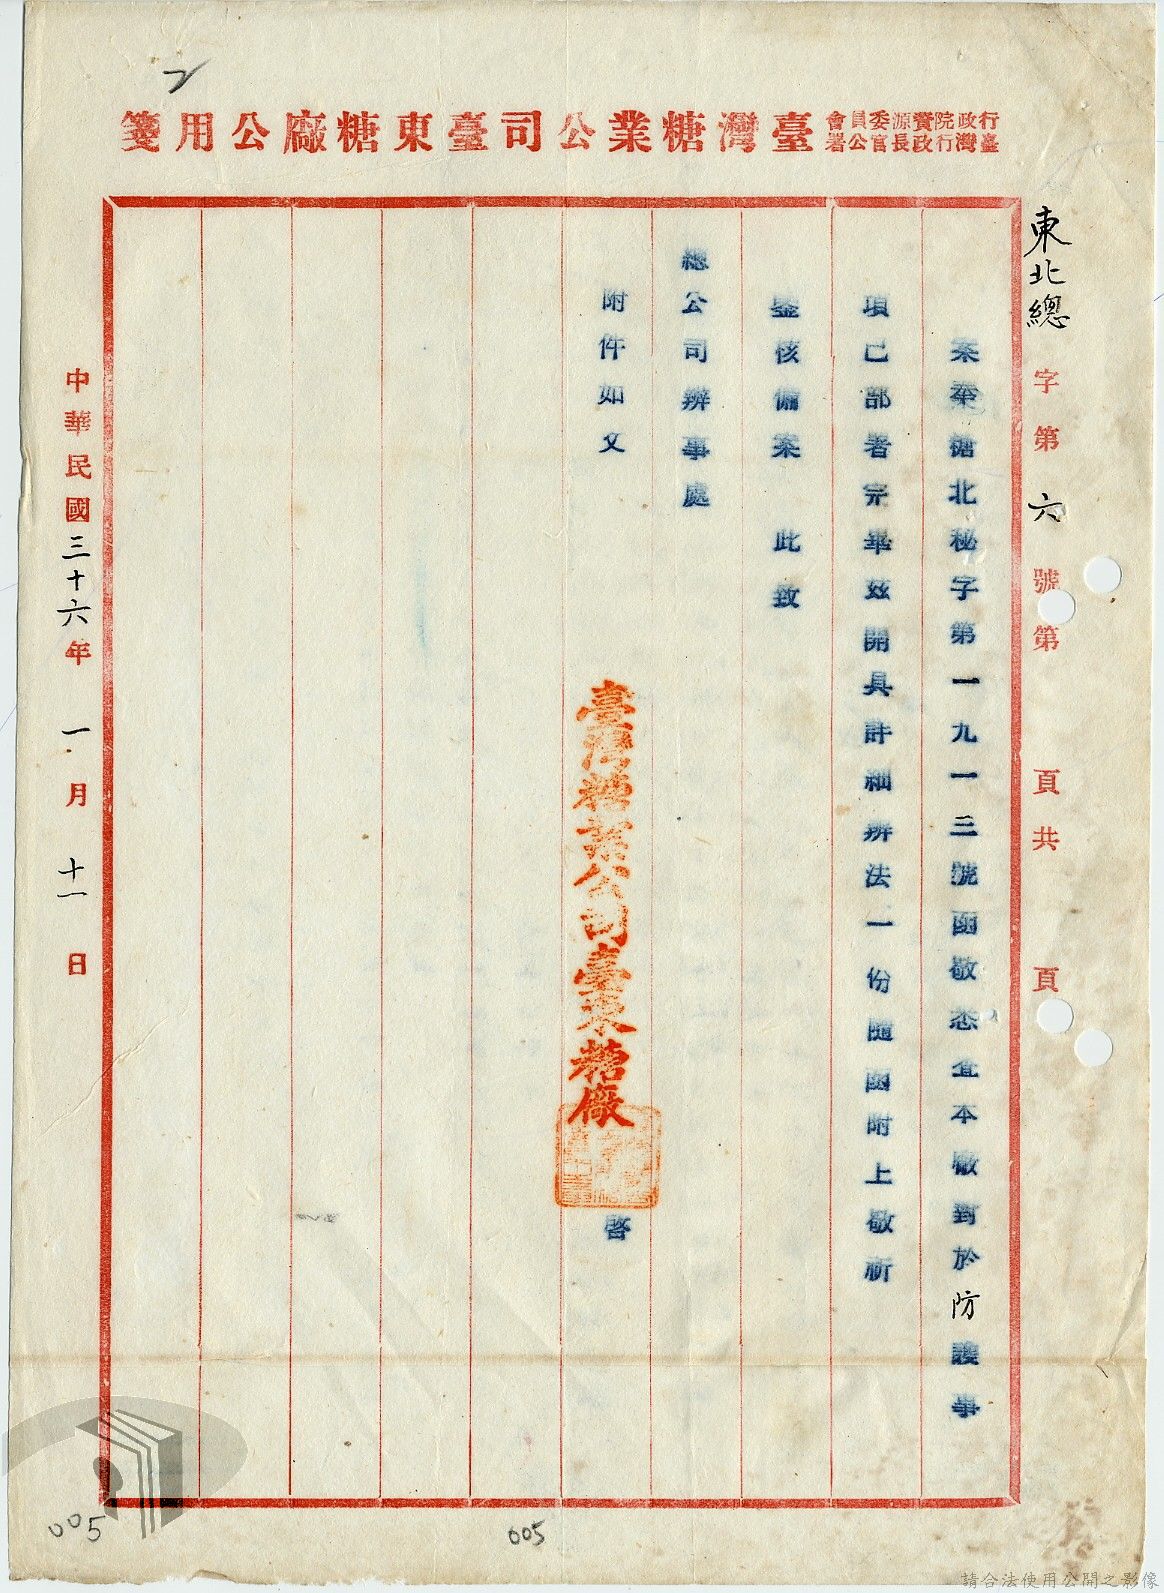 行政院資源委員會
臺灣行政長官公署
臺灣糖業公司臺東糖廠公用箋
東北總字第六號第 頁共 頁
案奉糖北秘字第一九一三號函敬悉查本廠對於防護事
項已部署完畢茲開具詳細辦法一份隨函附上敬祈
鉴核備案 此致
總公司辦事處
附件如文
臺灣糖業公司臺東糖廠
啓
中華民國三十六年 一月 十一日
005
005
請合法使用公開之影像